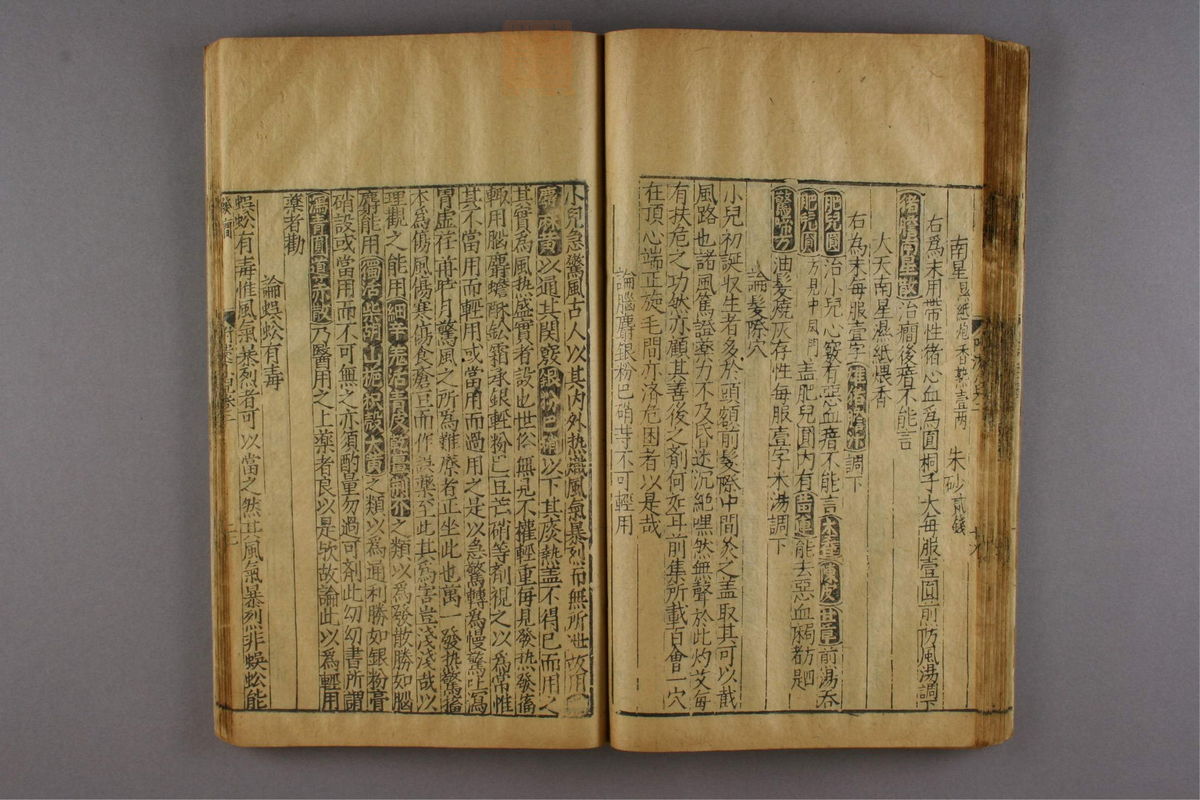 南星
朱砂貳錢
右爲末用帶性猪心血爲圓桐子大每服壹圓煎防風湯調下
治癎後瘖不能言
大天南星濕紙煨香
右為末每服壹字調下
肥兒圓治小兒心竅有惡血瘖不能言木香陳皮甘草煎湯吞
肥兒圓方見中風門盖肥兒圓内有黄連能去惡血
油髮燒灰存性每服壹字木湯調下
論髮際穴
小兒初誕収生者多於頭額前髮際中間灸之盖取其可以截
風路也諸風篤證藥力不乃氏迷沉絶嘿然無聲於此灼艾每
有扶危之功然亦顧其善後之劑何如耳前集所載百會一穴
在頂心端正旋毛間亦洛危困者以是哉
論腦麝銀粉巴硝等不可輕用
小兒急驚風古人以其内外热熾風氣暴烈而無所泄故用
以通其関竅銀粉巴硝以下其痰熱盖不得已而用之
其實為風热盛實者設也世俗無見不權輕重每見發热發搐
輙用腦麝蟾酥鈆霜水銀輕粉巴豆芒硝等劑視之以爲常惟
其不當用而輕用或當用而過用之是以急驚轉爲慢驚吐瀉
胃虚荏苒時月驚風之所爲難療者正坐此也萬一發热驚搐
本爲傷風傷寒傷食瘡豆而作誤藥至此其爲害豈淺淺哉以
理觀之能用細辛羌活青皮之類以爲發散勝如腦
麝能用獨活柴胡山梔枳殼大黄之類以爲通利勝如銀粉膏
硝設或當用而不可無之亦須酌量勿過可劑此幼幼書所謂
瀉青圓導赤散乃醫用之上藥者良以是欤故論此以爲輕用
藥者勸
論蜈蚣有毒
蜈蚣有毒惟風氣暴烈者可以當之然其風氣暴烈非蜈蚣能